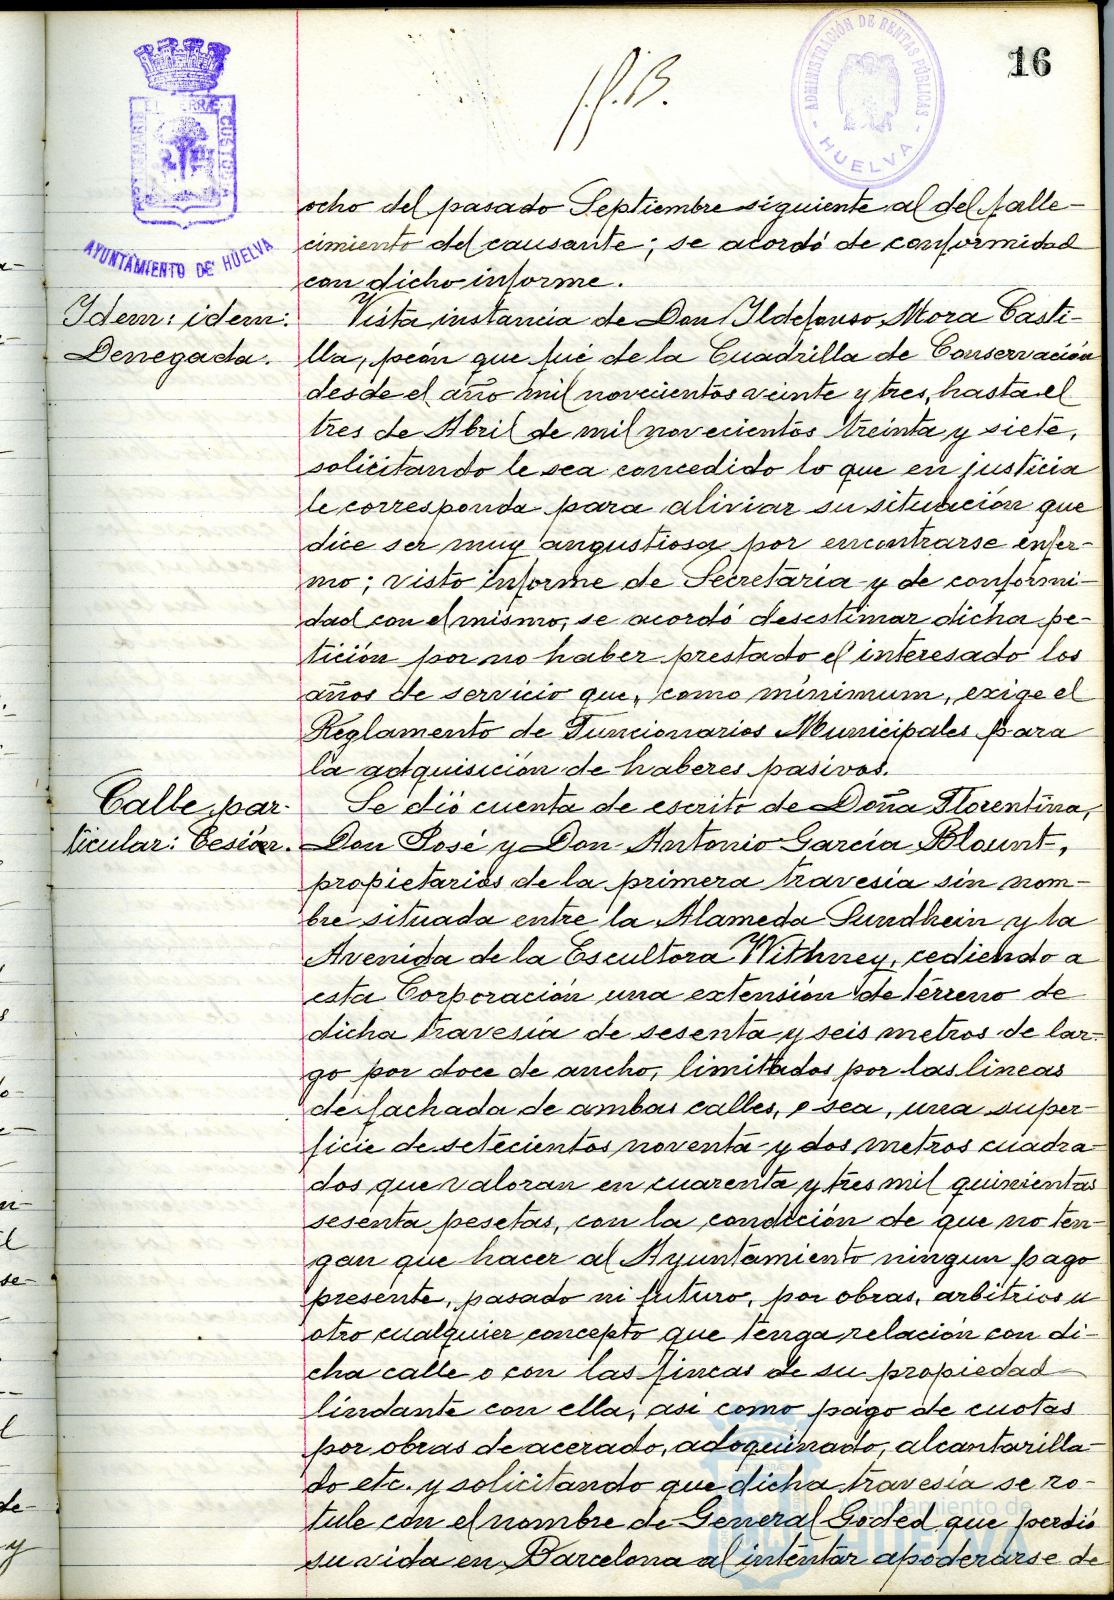 16
ADMINISTRACIÓN DE RENTAS PÚBLICAS
HUELVA
AYUNTAMIENTO DE HUELVA
ocho del pasado Septiembre siguiente al del falle-
cimiento del causante; se acordó de conformidad
con dicho informe.
Idem: idem:
Denegada.
Vista instancia de Don Ildefonso Mora Casti-
lla, peón que fué de la Cuadrilla de Conservación
desde el año mil novecientos veinte y tres, hasta el
tres de Abril de mil novecientos treinta y siete,
solicitando le sea concedido lo que en justicia
le corresponda para aliviar su situación que
dice ser muy angustiosa por encontrarse enfer-
mo; visto informe de Secretaría y de conformi-
dad con el mismo, se acordó desestimar dicha pe-
tición por no haber prestado el interesado los
años de servicio que, como mínimum, exige el
Reglamento de Funcionarios Municipales para
la adquisición de haberes pasivos.
Calle par-
ticular: Cesión.
Se dió cuenta de escrito de Doña Florentina,
Don José y Don Antonio García Blount,
propietarios de la primera travesía sin nom-
bre situada entre la Alameda Sundhein y la
Avenida de la Escultora Withney, cediendo a
esta Corporación una extensión de terreno de
dicha travesía de sesenta y seis metros de lar-
go por doce de ancho, limitados por las lineas
de fachada de ambas calles, o sea, una super-
ficie de setecientos noventa y dos metros cuadra-
dos que valoran en cuarenta y tres mil quinientas
sesenta pesetas, con la condición de que no ten-
gan que hacer al Ayuntamiento ningun pago
presente, pasado ni futuro, por obras, arbitrios u
otro cualquier concepto que tenga relación con di-
cha calle o con las fincas de su propiedad
lindante con ella, asi como pago de cuotas
por obras de acerado, adoquinado, alcantarilla-
do etc. y solicitando que dicha travesía se ro-
tule con el nombre de General Goded que perdió
su vida en Barcelona al intentar apoderarse de
Ayuntamiento de
HUELVA